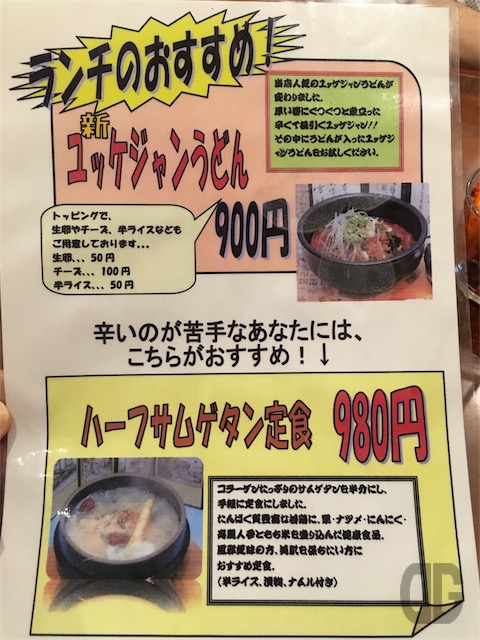 ランチのおすすめ！
新
ユッケジャンうどん
900円
当店人気のユッケジャンうどんが
変わりました。
厚い器にぐつぐつと煮立った
辛くて後引くユッケジャン!!
その中にうどんが入ったユッケジ
ャンうどんをお試しください。
トッピングで、
生卵やチーズ、半ライスなども
ご用意しております...
生卵、、、50円
チーズ、、、100円
半ライス、、、50円
辛いのが苦手なあなたには、
こちらがおすすめ！↓
ハーフサムゲタン定食
980円
コラーゲンたっぷりのサムゲタンを半分にし、
手軽に定食にしました。
たんぱく質豊富な鶏に、栗・ナツメ・にんにく・
高麗人参ともち米を盛り込んだ健康食品。
風邪気味の方、美肌を保ちたい方に
おすすめ定食。
(半ライス、漬物、ナムル付き)